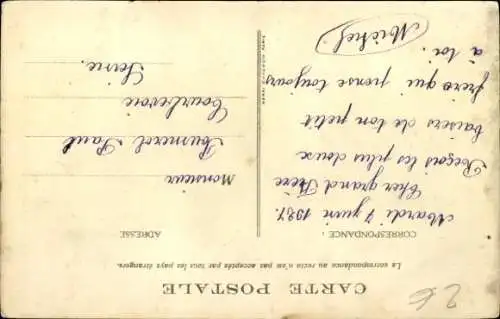 CARTE POSTALE
La correspondance au recto n'est pas acceptée par tous les pays étrangers.
CORRESPONDANCE :
Mardi 7 juin 1927.
Cher grand Frère
Reçois les plus doux
baisers de ton petit
frère qui pense toujours
à toi.
Michel
ADRESSE
Monsieur
Paul
Courbevoie
Seine.